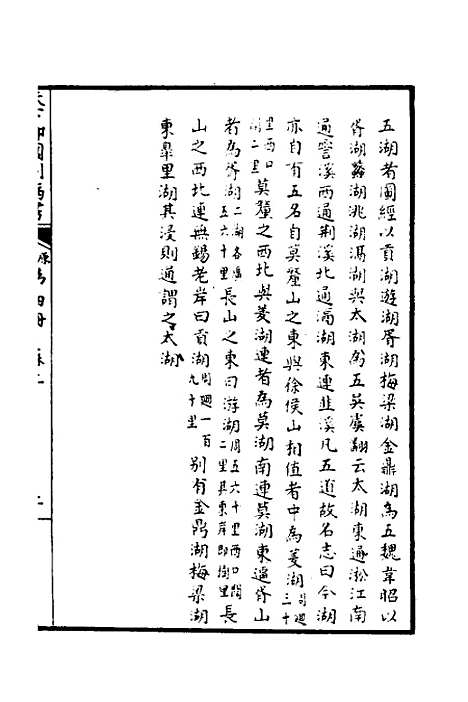 五湖者圖經以貢湖遊湖胥湖梅梁湖金鼎湖為五魏韋昭以
胥湖蠡湖洮湖滆湖與太湖為五吳虞翻云太湖東通淞江南
通霅溪西通荆溪北通滆湖東連韭溪凡五道故名志曰今湖
亦自有五名自莫釐山之東與徐侯山相值者中為菱湖周迴三十
里西口闊二里莫釐之西北與菱湖連者為莫湖南連莫湖東逼胥山
者為胥湖二湖各濶五六十里長山之東曰游湖周五六十里西口闊二里其東岸即樹里長
山之西北連無錫老岸曰貢湖周迴一百九十里別有金鼎湖梅梁湖
東臯里湖其浸則通謂之太湖
天下郡國利病書
原第四冊 蘇上